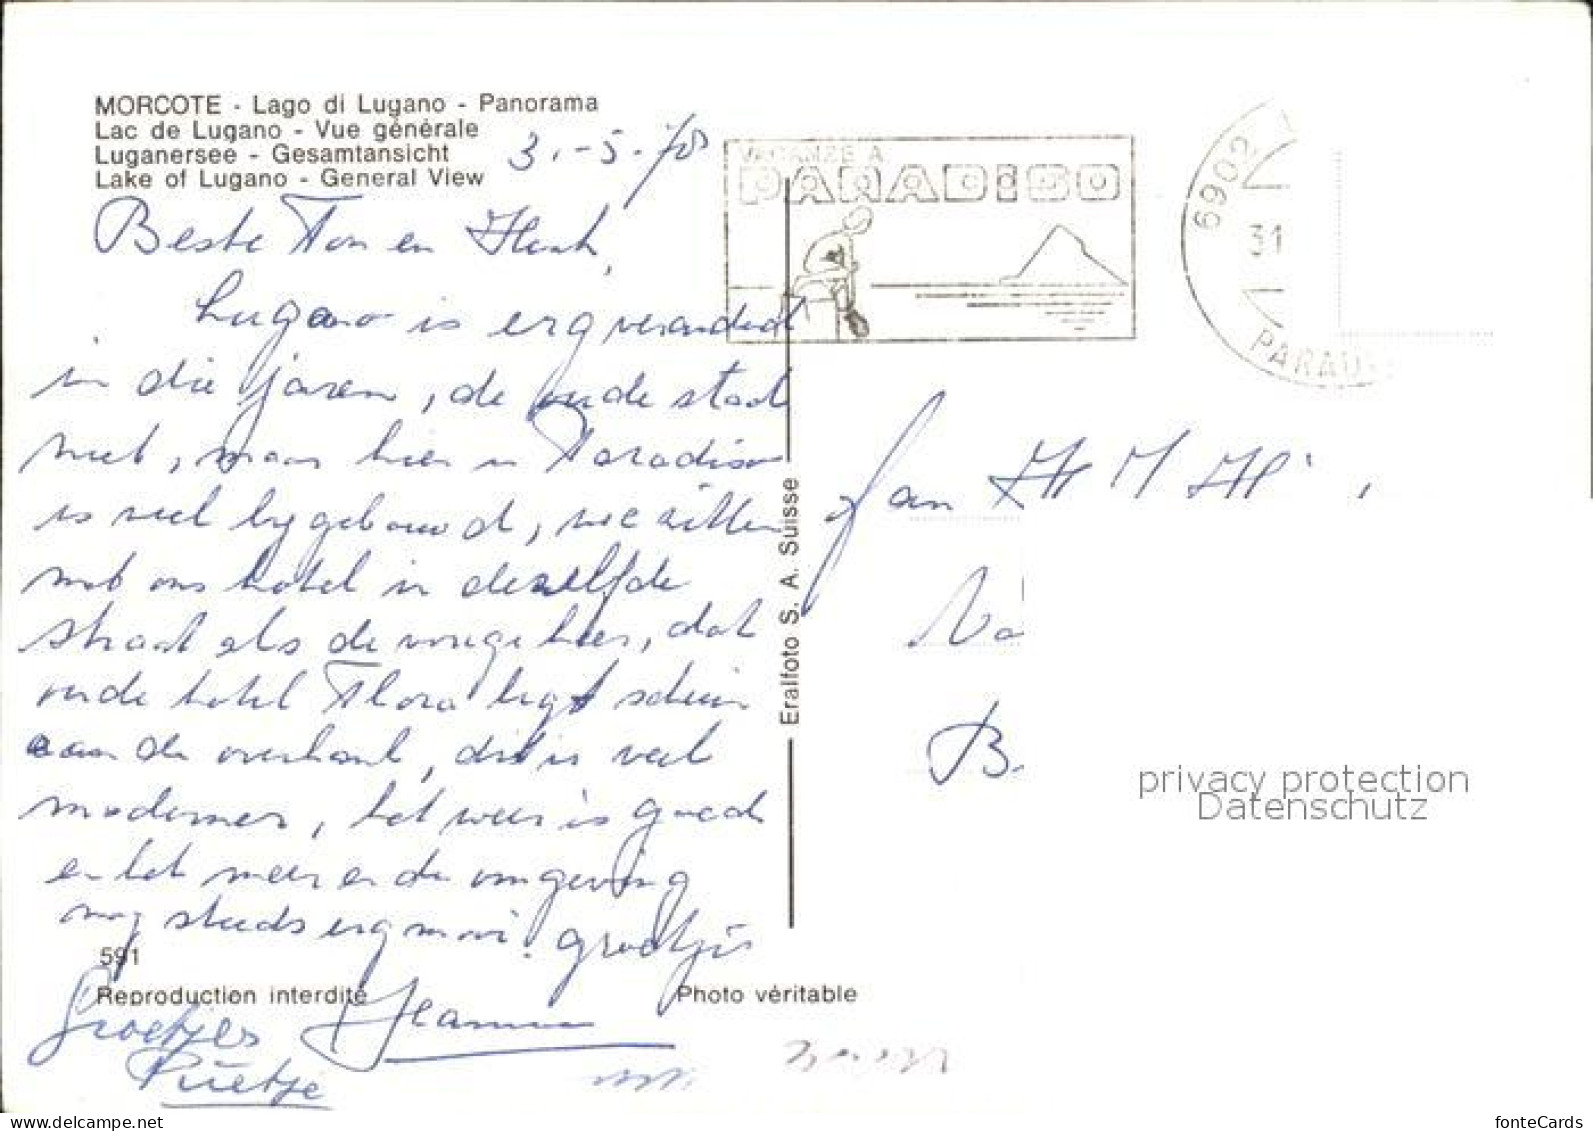 MORCOTE - Lago di Lugano - Panorama
Lac de Lugano - Vue générale
Luganersee - Gesamtansicht
Lake of Lugano - General View
3.-5.-78
Beste Ton en Henk,
Lugano is erg veranderd
in die jaren, de oude stad
niet, maar hier in Paradiso
is veel bijgebouwd, we zitten
met ons hotel in dezelfde
straat als de vorige keer, dat
oude hotel Flora ligt schuin
aan de overkant, dit is veel
moderner, het weer is goed
en het meer en de omgeving
nog steeds erg mooi. Groetjes
591
Reproduction interdite
Photo véritable
Groetjes
Puetje
Eralfoto S. A. Suisse
VACANZE A
PARADISO
6902
31
PARADI
Fam
privacy protection
Datenschutz
delcampe.net
fonteCards